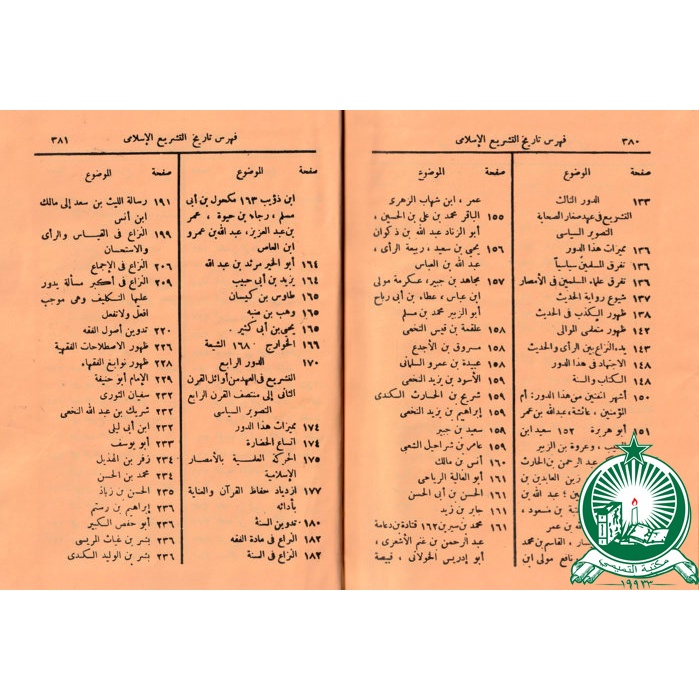 ٣٨٠ فهرس تاريخ التشريع الإسلامى
صفحة الموضوع
١٣٣ الدور الثالث
التشريع فى عهد صغار الصحابة
التصوير السياسى
١٣٦ مميزات هذا الدور
١٣٦ تفرق المسلمين سياسياً
١٣٦ تفرق علماء المسلمين فى الأمصار
١٣٧ شيوع رواية الحديث
١٣٨ ظهور الكذب فى الحديث
١٤٢ ظهور متعلمى الموالى
١٤٣ بدء النزاع بين الرأى والحديث
١٤٨ الاجتهاد فى هذا الدور
١٤٨ الكتاب والسنة
١٥٠ أشهر المفتين من هذا الدور: أم
المؤمنين، عائشة، عبد الله بن عمر
١٥١ أبو هريرة ١٥٢ سعيد ابن
وعروة بن الزبير
عبد الرحمن بن الحارث
زين العابدين بن
عبد الله بن
بن مسعود،
الله بن عمر
القاسم بن محمد
نافع مولى ابن
صفحة الموضوع
عمر، ابن شهاب الزهرى
١٥٥ الباقر محمد بن على بن الحسين،
أبو الزناد عبد الله بن ذكوان
١٥٦ يحيى بن سعيد، ربيعة الرأى،
عبد الله بن العباس
١٥٧ مجاهد بن جبير، عكرمة مولى
ابن عباس، عطاء بن أبى رباح
أبو الزبير محمد بن مسلم
١٥٨ علقمة بن قيس النخعى
١٥٨ مسروق بن الأجدع
١٥٨ عبيدة بن عمرو السلمانى
١٥٩ الأسود بن يزيد النخعى
١٥٩ شريح بن الحارث الكندى
١٥٩ إبراهيم بن يزيد النخعى
١٥٩ سعيد بن جبير
١٥٩ عامر بن شراحيل الشعبى
١٦٠ أنس بن مالك
١٦٠ أبو العالية الرياحى
١٦١ الحسن بن أبى الحسن
١٦١ جابر بن زيد
١٦١ محمد بن سيرين ١٦٢ قتادة بن دعامة
عبد الرحمن بن غنم الأشعرى،
أبو إدريس الخولانى، قبيصة
فهرس تاريخ التشريع الإسلامى ٣٨١
صفحة الموضوع
ابن ذؤيب ١٦٣ مكحول بن أبى
مسلم، رجاء بن حيوة، عمر
بن عبد العزيز، عبد الله بن عمرو
ابن العاص
١٦٤ أبو الخير مرثد بن عبد الله
١٦٤ يزيد بن أبى حبيب
١٦٥ طاوس بن كيسان
١٦٥ وهب بن منبه
١٦٥ يحيى بن أبى كثير.
١٦٦ الخوارج ١٦٨ الشيعة
١٧٠ الدور الرابع
التشريع فى العهد من أوائل القرن
الثانى إلى منتصف القرن الرابع
التصوير السياسى
١٧٤ مميزات هذا الدور
١٧٤ اتساع الحضارة
١٧٥ الحركة العلمية بالأمصار
الإسلامية
١٧٧ ازدياد حفاظ القرآن والعناية
بأدائه
١٨٠ تدوين السنة
١٨٢ النزاع فى مادة الفقه
١٨٢ النزاع فى السنة
صفحة الموضوع
١٩١ رسالة الليث بن سعد إلى مالك
ابن أنس
١٩٩ النزاع فى القياس والرأى
والاستحسان
٢٠٦ النزاع فى الإجماع
٢٠٩ النزاع فى أكبر مسألة يدور
عليها التكليف وهى موجب
افعل ولا تفعل
٢٢٠ تدوين أصول الفقه
٢٢٢ ظهور الاصطلاحات الفقهية
٢٢٨ ظهور نوابغ الفقهاء
٢٢٩ الإمام أبو حنيفة
٢٣١ سفيان الثورى
٢٣٢ شريك بن عبد الله النخعى
٢٣٢ ابن أبى ليلى
٢٣٣ أبو يوسف
٢٣٤ زفر بن الهذيل
٢٣٤ محمد بن الحسن
٢٣٥ الحسن بن زياد
٢٣٦ إبراهيم بن رستم
٢٣٦ أبو حفص الكبير
٢٣٦ بشر بن غياث المريسى
٢٣٦ بشر بن الوليد الكندى